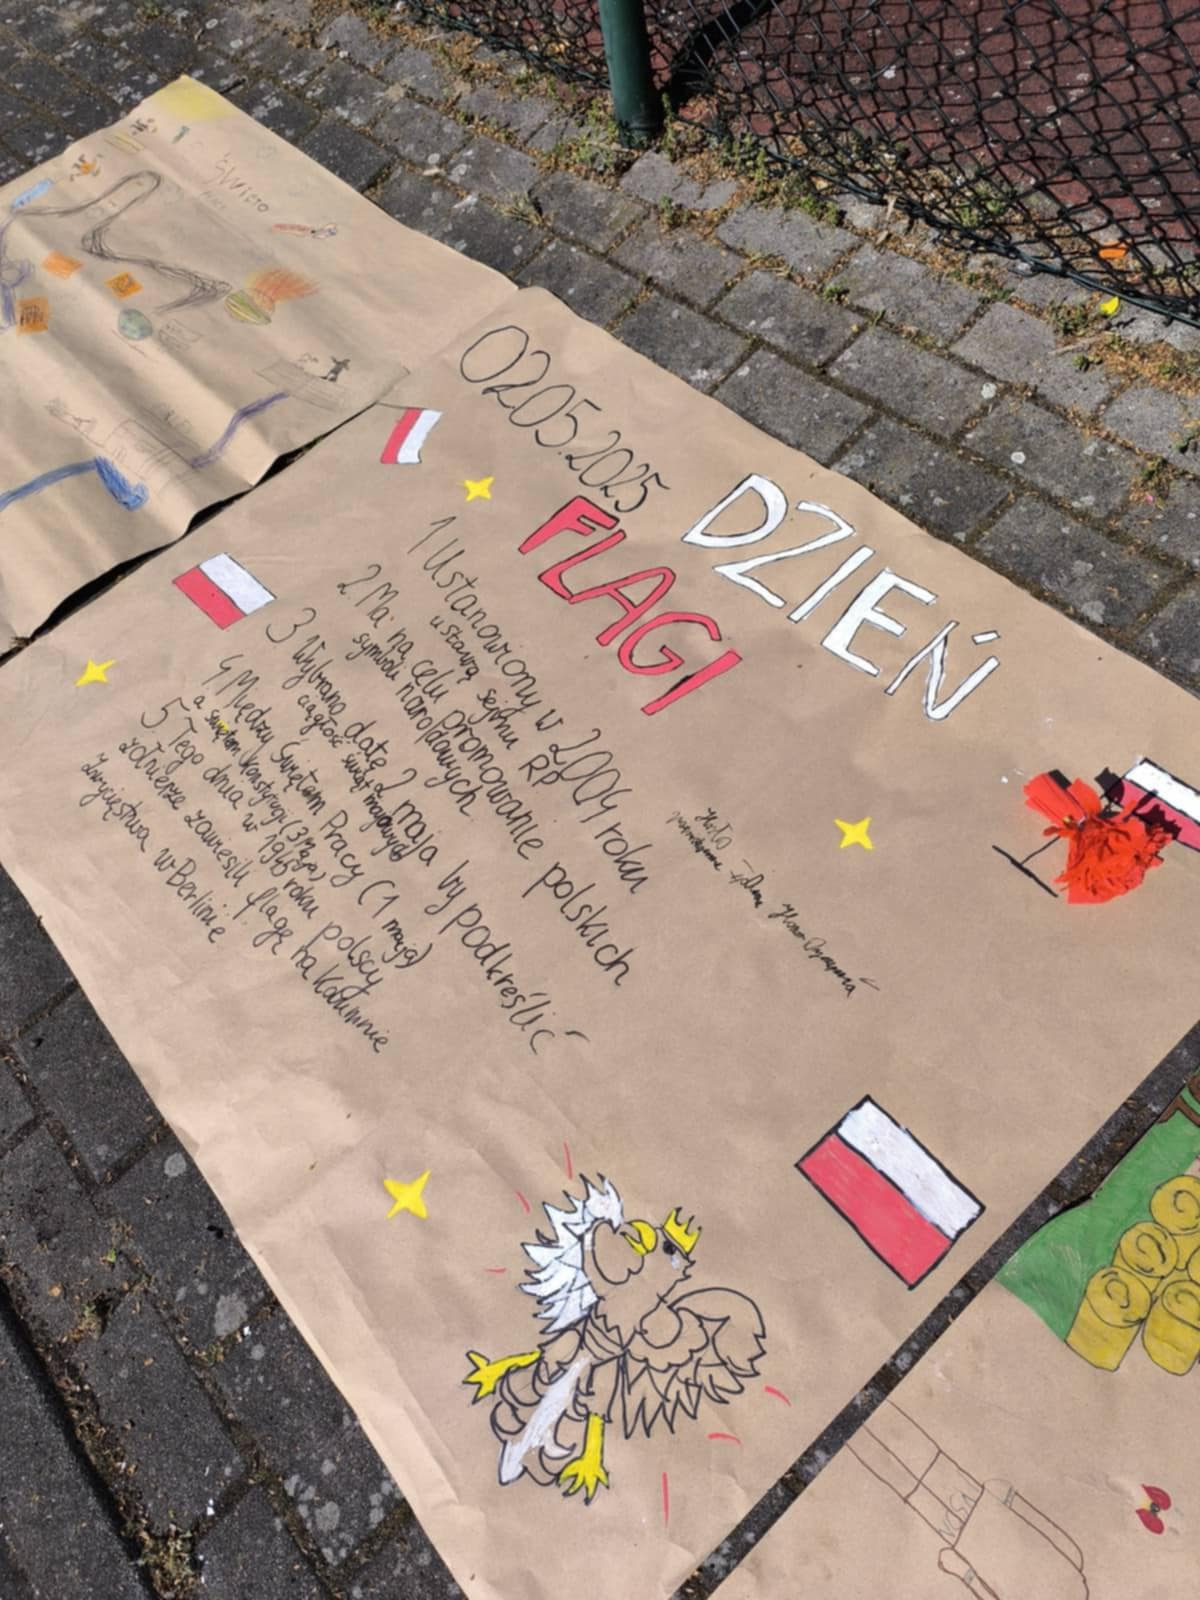 02.05.2025
DZIEŃ
FLAGI
1 Ustanowiony w 2004 roku
ustawą sejmu RP
2 Ma na celu promowanie polskich
symboli narodowych
3 Wybrano datę 2 maja by podkreślić
ciągłość świąt majowych
4 Między Świętem Pracy (1 maja)
a świętem konstytucji (3 maja)
5 Tego dnia w 1945 roku polscy
żołnierze zawiesili flagę na Kolumnie
Zwycięstwa w Berlinie
Święto